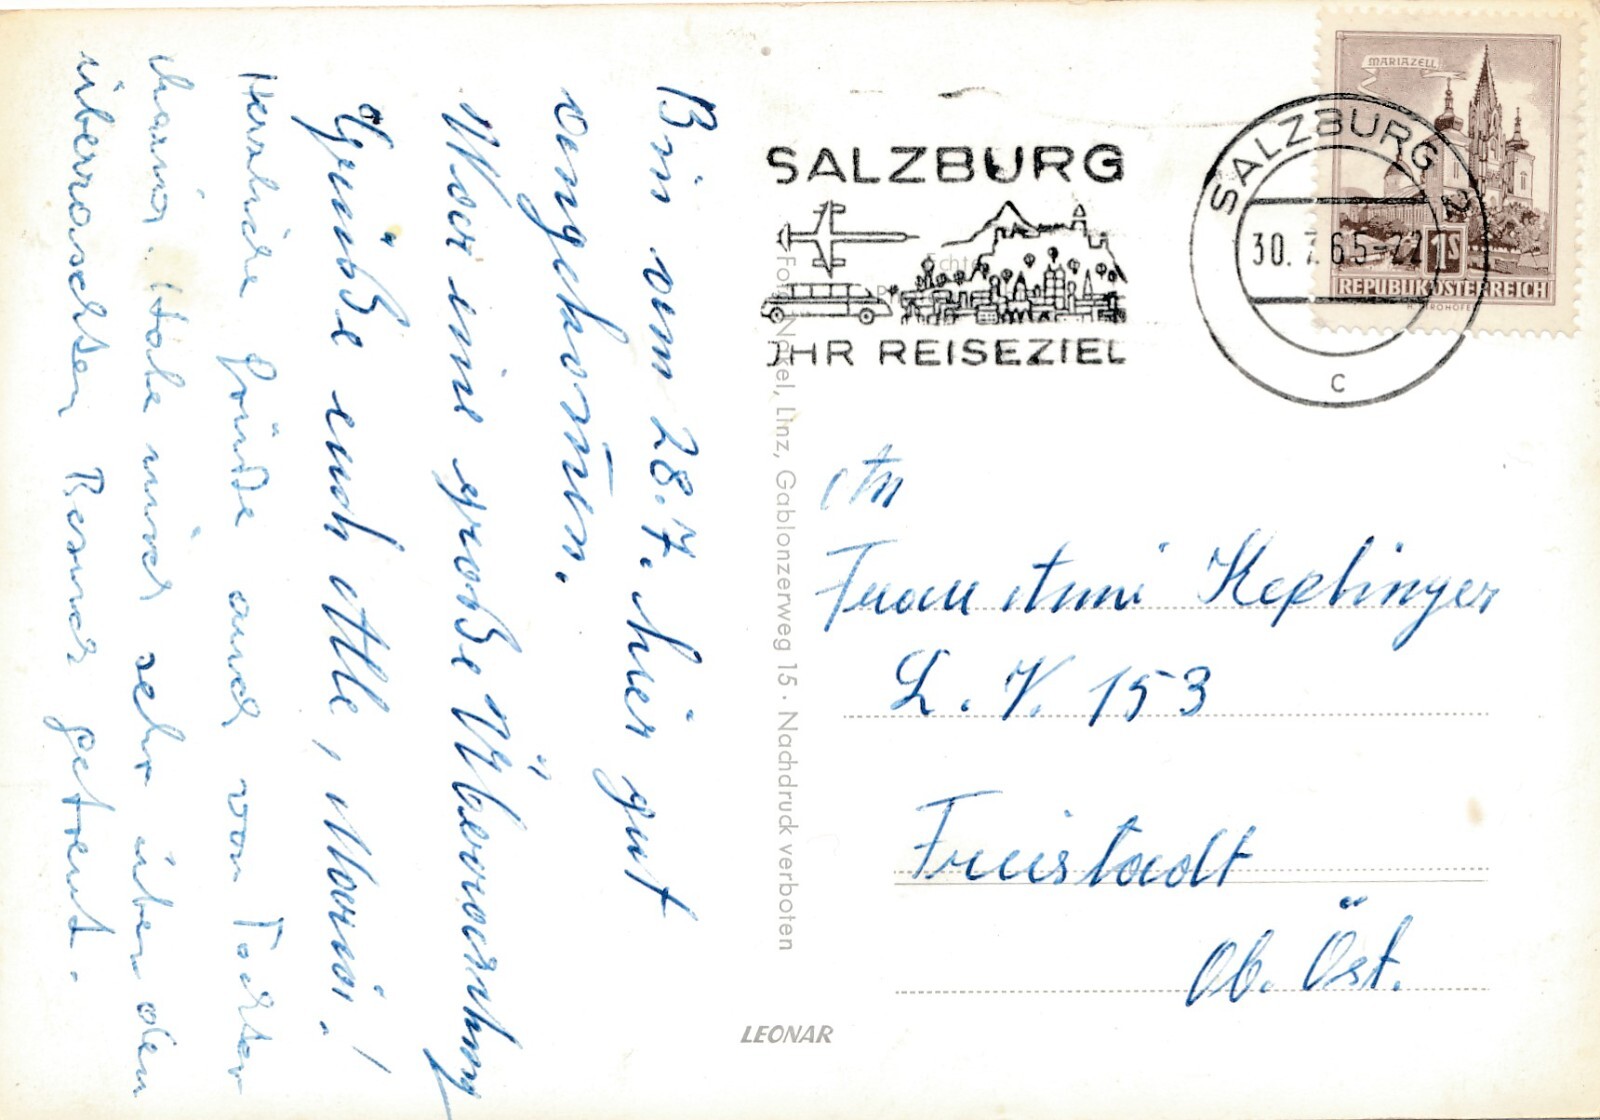 Bin am 28.7. hier gut
angekom̅en.
War eine große Überraschung
Grüße euch Alle, Maria!
Herzliche Grüße auch von Tochter
Maria. Habe mich sehr über den
überraschten Besuch gefreut.
SALZBURG
IHR REISEZIEL
SALZBURG 2
30. 7. 65-22
c
MARIAZELL
1S
REPUBLIK ÖSTERREICH
Echte
Linz, Gablonzerweg 15 · Nachdruck verboten
An
Frau Anni Keplinger
L. V. 153
Freistadt
Ob. Öst.
LEONAR